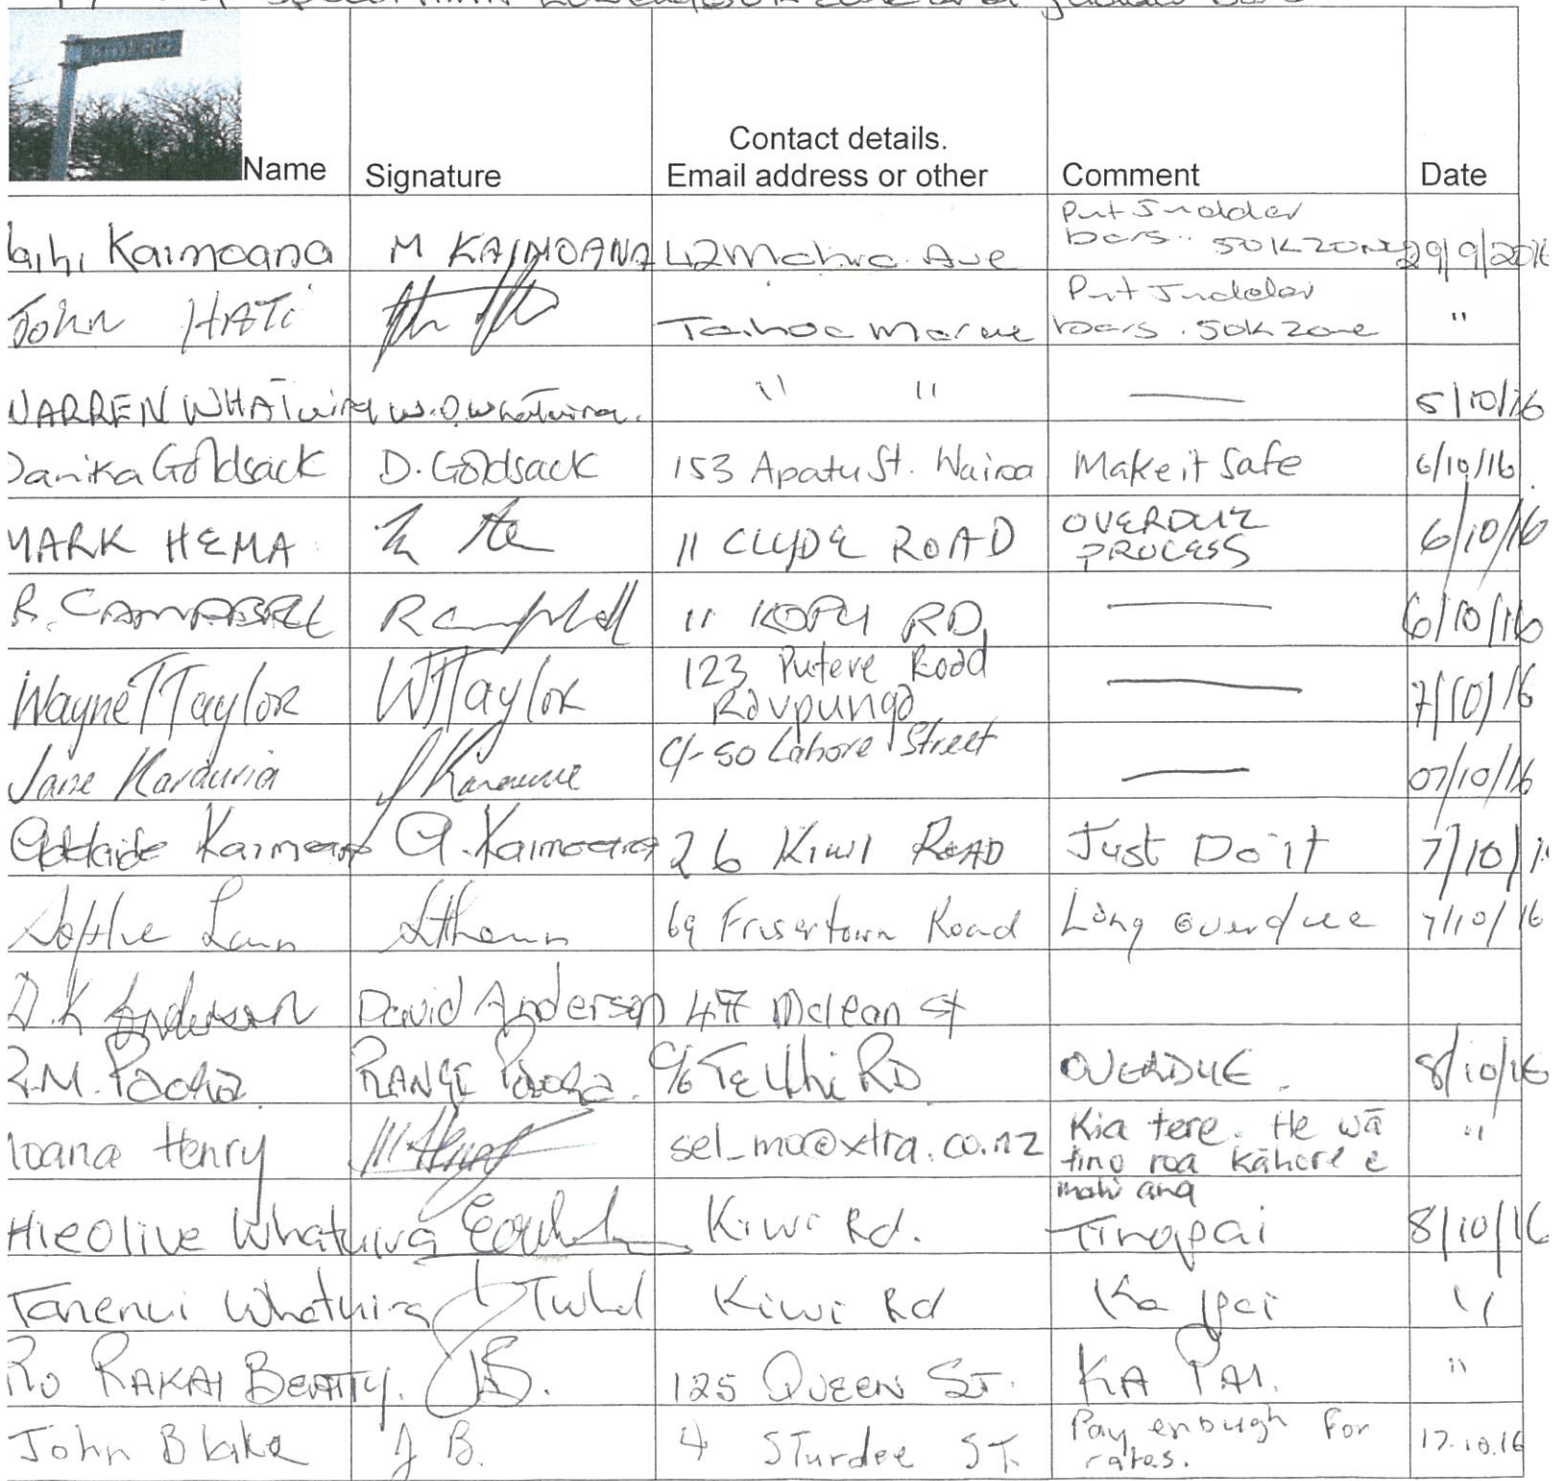 Name Signature Contact details. Email address or other Comment Date
Kaimoana M KAIMOANA 42 Mahia Ave Put Judder bars.. 50K ZONE 29/9/2016
John HATi Taihoa Marae Put Judder bars. 50K Zone "
WARREN WHATuira W.O.Whatuira. " " — 5/10/16
Danika Goldsack D. Goldsack 153 Apatu St. Wairoa Make it Safe 6/10/16
MARK HEMA 11 CLYDE ROAD OVERDUE PROCESS 6/10/16
R. CAMPBELL R Campbell 11 KOPU RD — 6/10/16
Wayne T Taylor WTTaylor 123 Putere Road Raupunga — 7/10/16
Jane Karauria J Karauria C/- 50 Lahore Street — 07/10/16
Adelaide Kaimoana A. Kaimoana 26 Kiwi ROAD Just Do it 7/10/1
69 Frasertown Road Long overdue 7/10/16
D.K Anderson David Anderson 47 Mclean St
R.M. Paoha RANGI Paoha. C/6 Te Uhi RD OVERDUE. 8/10/16
Moana Henry sel_mo@xtra.co.nz Kia tere. He wā tino roa kāhore e mahi ana "
Olive Whatuira Kiwi Rd. Tino pai 8/10/16
Tanenui Whatuira Kiwi Rd Ka pai "
RO RAKAI BEATTY. 125 QUEEN ST. KA PAI. "
John Blake J B. 4 STurdee ST. Pay enough for rates. 17.10.16